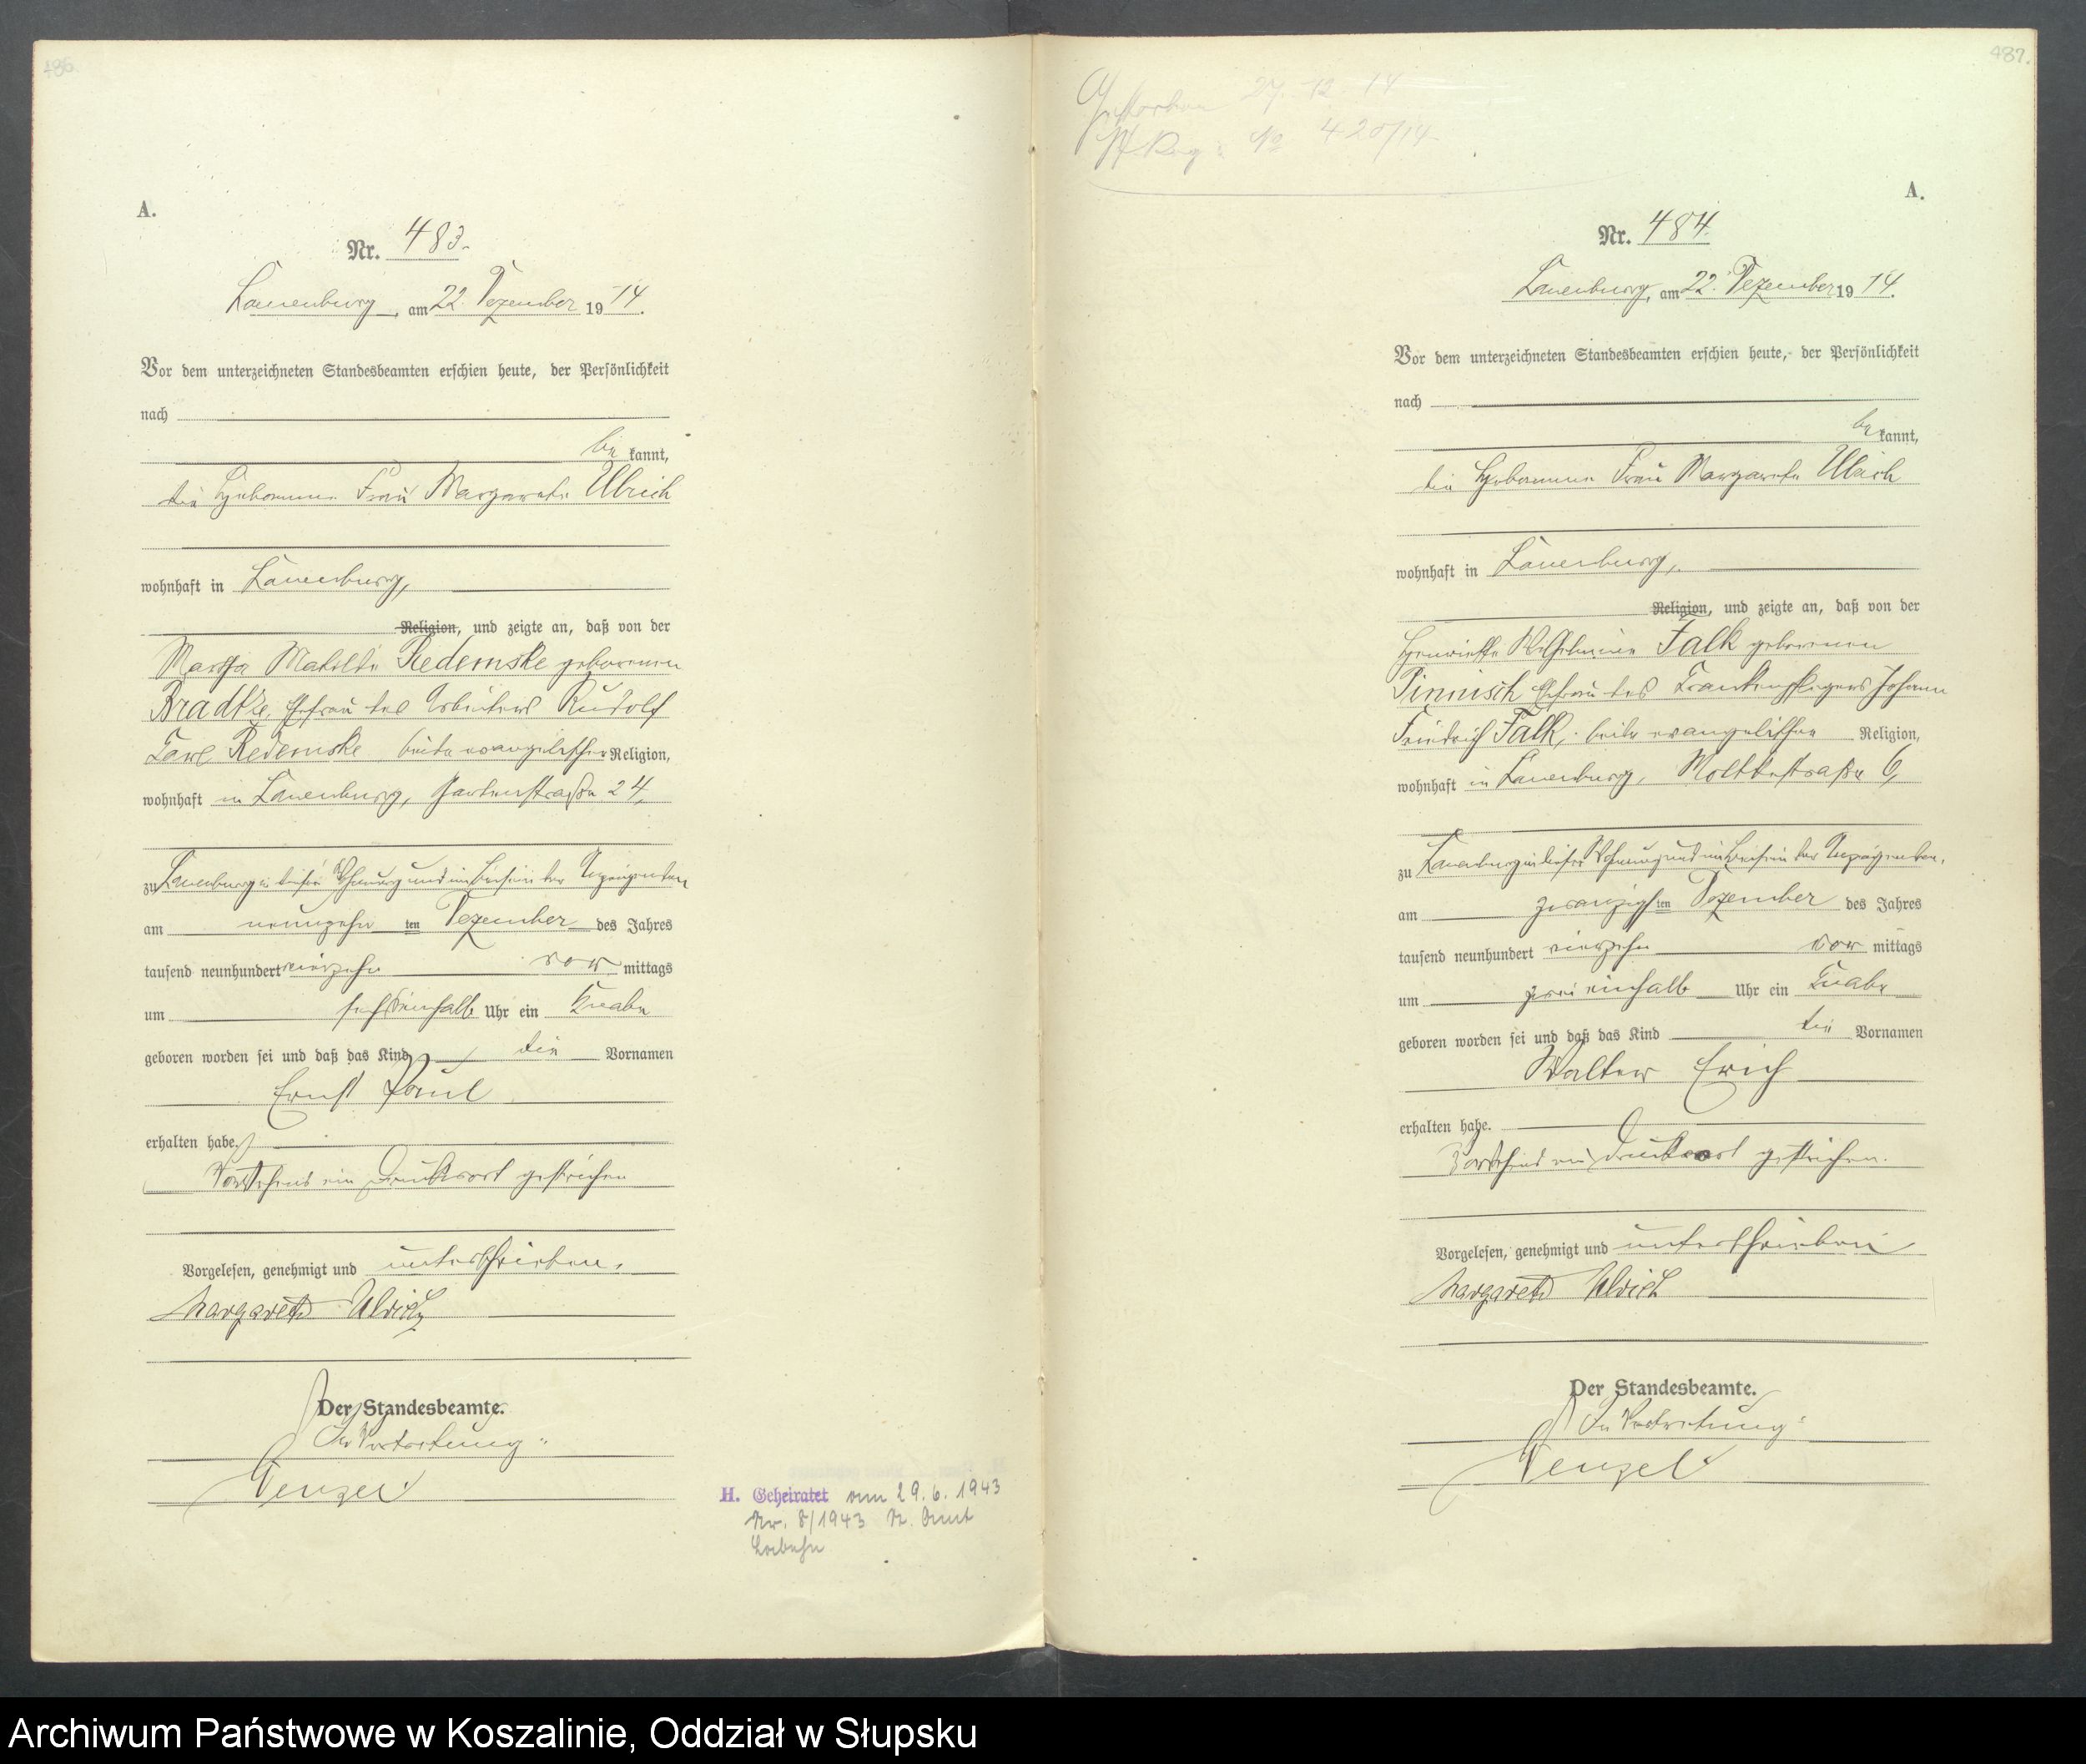 486.
A.
Nr. 483.
Lauenburg, am 22. Dezember 1914.
Vor dem unterzeichneten Standesbeamten erschien heute, der Persönlichkeit
nach
be kannt,
die Hebamme Frau Margarete Ulrich
wohnhaft in Lauenburg,
Religion, und zeigte an, daß von der
Martha Mathilde Redemske geborenen
Bradtke, Ehefrau des Arbeiters Rudolf
Carl Redemske, beide evangelischer Religion,
wohnhaft in Lauenburg, Gartenstraße 24,
zu Lauenburg in dieser Wohnung und im Beisein der Anzeigenden
am neunzehn ten Dezember des Jahres
tausend neunhundert vierzehn vor mittags
um sechseinhalb Uhr ein Knabe
geboren worden sei und daß das Kind die Vornamen
Ernst Paul
erhalten habe.
Vorstehend ein Druckwort gestrichen
Vorgelesen, genehmigt und unterschrieben.
Margarete Ulrich
Der Standesbeamte.
In Vertretung:
Wenzel
H. Geheiratet am 29.6.1943
Nr. 8/1943 St. Amt
487.
Gestorben 27. 12. 14
St. Reg: No 420/14
A.
Nr. 484.
Lauenburg, am 22. Dezember 1914.
Vor dem unterzeichneten Standesbeamten erschien heute, der Persönlichkeit
nach
be kannt,
die Hebamme Frau Margarete Ulrich
wohnhaft in Lauenburg,
Religion, und zeigte an, daß von der
Henriette Wilhelmine Falk geborenen
Pinnisch Ehefrau des Krankenpflegers Johann
Friedrich Falk, beide evangelischer Religion,
wohnhaft in Lauenburg, Moltkestraße 6,
zu Lauenburg in dieser Wohnung und im Beisein der Anzeigenden,
am zwanzigsten Dezember des Jahres
tausend neunhundert vierzehn vor mittags
um zweieinhalb Uhr ein Knabe
geboren worden sei und daß das Kind die Vornamen
Walter Erich
erhalten habe.
Vorstehend ein Druckwort gestrichen.
Vorgelesen, genehmigt und unterschrieben
Margarete Ulrich
Der Standesbeamte.
In Vertretung:
Wenzel
Archiwum Państwowe w Koszalinie, Oddział w Słupsku